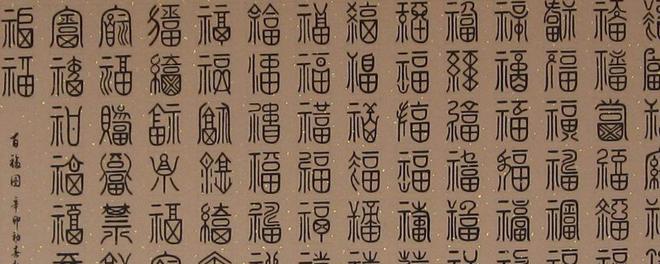 福福福福福
福福福福福
福福福福福
福福福福福
福福福福福
福福福福福
福福福福福
福福福福福
福福福福福
福福福福福
福福福福福
福福福福福
福福
百福图辛卯初